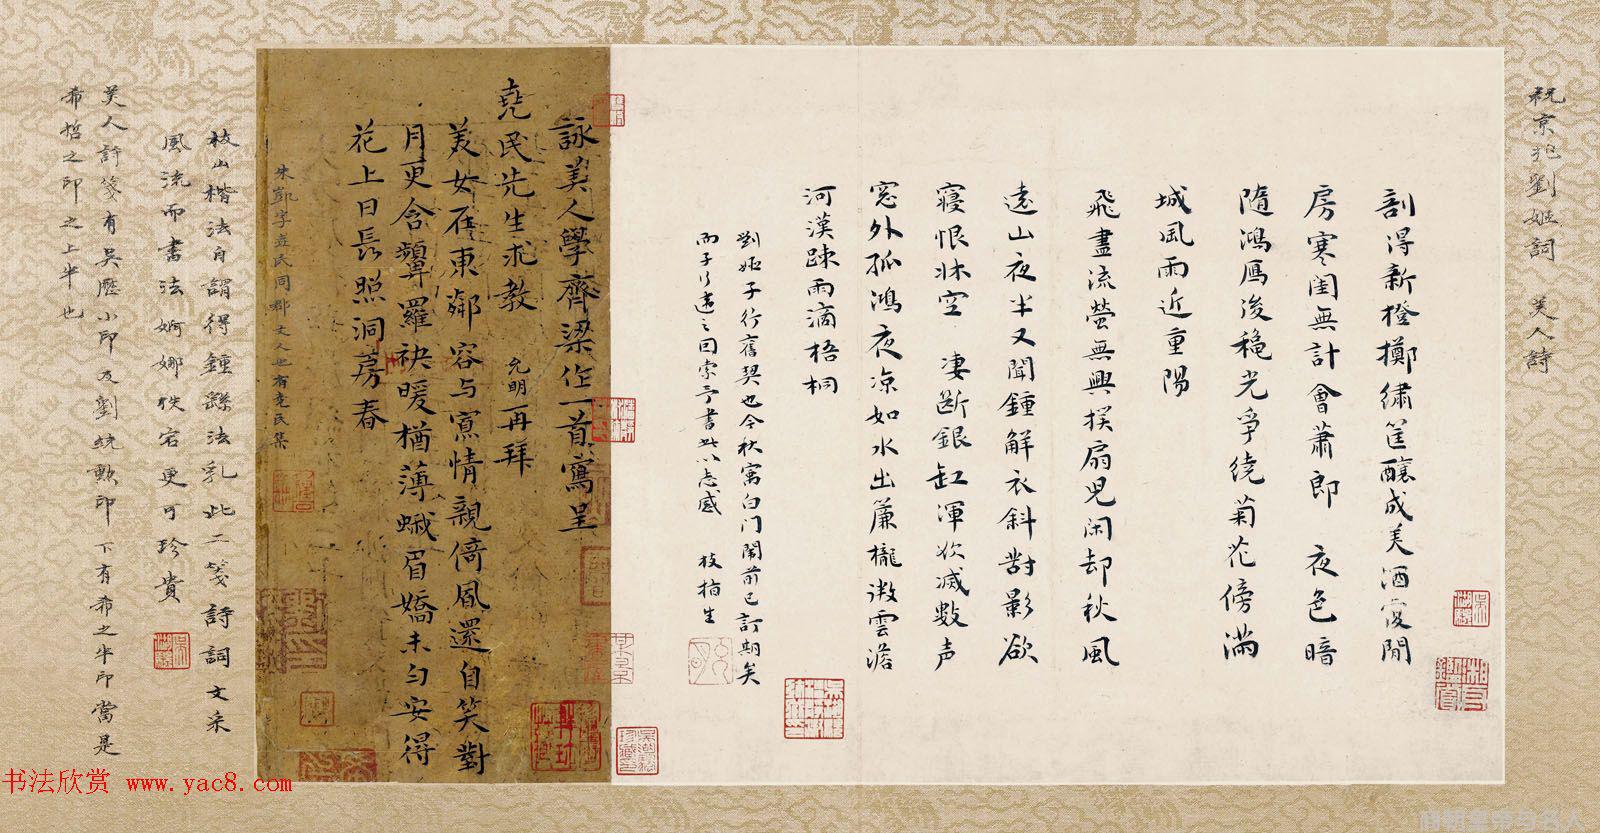 祝京兆劉姬詞　美人詩
剖得新橙擲繡筐釀成美酒復閒
房寒閨無計會蕭郎　夜色暗
隨鴻雁後穐光爭繞菊花傍滿
城風雨近重陽
飛盡流螢無興撲扇兒閑却秋風
遠山夜半又聞鍾解衣斜對影欲
寢恨牀空　凄斷銀缸渾欲滅數声
窓外孤鴻夜凉如水出簾櫳微雲澹
河漢疎雨滴梧桐
劉姬子行舊契也今秋寓白门闈前已訂期矣
而子行遣之回索予書此以志感　枝指生
詠美人學齊梁作一首寫呈
堯民先生求教　允明再拜
美女在東鄰容与寫情親倚風還自笑對
月更含顰羅袂暖猶薄蛾眉嬌未勻安得
花上日長照洞房春
朱凱字堯民同郡文人也有堯民集
枝山楷法自謂得鍾繇法乳此二箋詩詞文采
風流而書法婀娜佚宕更可珍貴
美人詩箋有吳歷小印及劉統勲印下有希之半印當是
希哲之印之上半也
书法欣赏 www.yac8.com